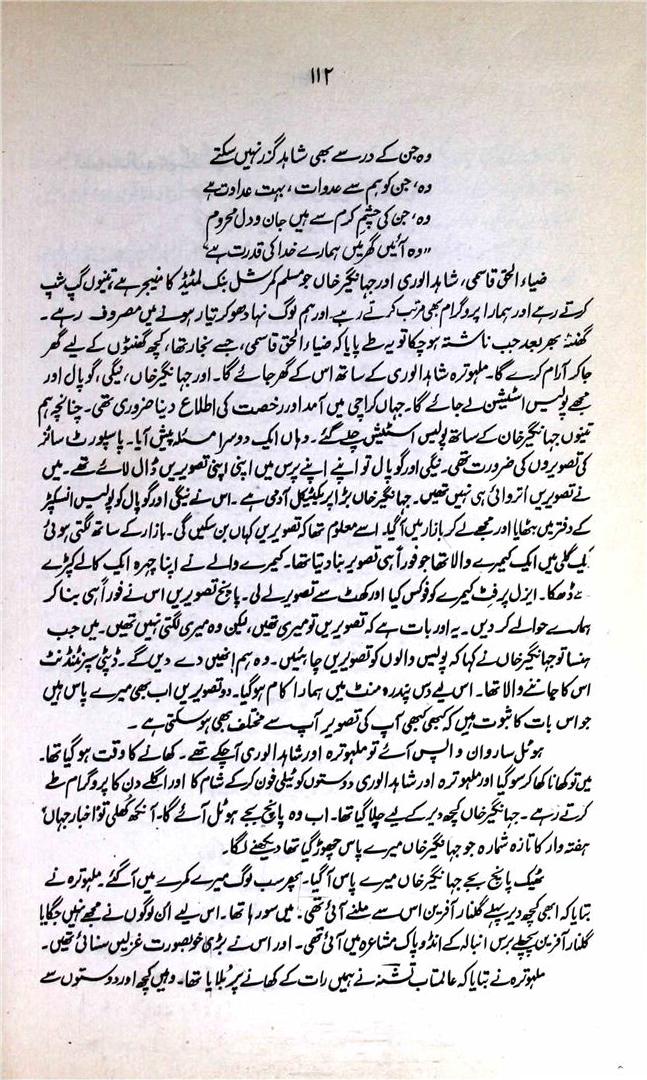 ۱۱۲
وہ جن کے در سے بھی شاہد گزر نہیں سکتے
وہ، جن کو ہم سے عدوات، بہت عداوت ہے
وہ، جن کی چشمِ کرم سے ہیں جان و دل محروم
"وہ آئیں گھر میں ہمارے خدا کی قدرت ہے"
ضیاء الحق قاسمی، شاہد الوری اور جہانگیر خاں جو مسلم کمرشل بنک لمٹیڈ کا منیجر ہے تینوں گپ شپ
کرتے رہے اور ہمارا پروگرام بھی مرتب کرتے رہے۔ اور ہم لوگ نہا دھو کر تیار ہونے میں مصروف رہے۔
گھنٹہ بھر بعد جب ناشتہ ہو چکا تو یہ طے پایا کہ ضیاء الحق قاسمی، جسے بخار تھا، کچھ گھنٹوں کے لیے گھر
جا کر آرام کرے گا۔ ملہوترہ شاہد الوری کے ساتھ اس کے گھر جائے گا۔ اور جہانگیر خاں، نیگی، گوپال اور
مجھے پولیس اسٹیشن لے جائے گا۔ جہاں کراچی میں آمد اور رخصت کی اطلاع دینا ضروری تھی۔ چنانچہ ہم
تینوں جہانگیر خان کے ساتھ پولیس اسٹیشن چلے گئے۔ وہاں ایک دوسرا مسئلہ پیش آیا۔ پاسپورٹ سائز
کی تصویروں کی ضرورت تھی۔ نیگی اور گوپال تو اپنے اپنے پرس میں اپنی اپنی تصویریں ڈال لائے تھے۔ میں
نے تصویریں اُتروائی ہی نہیں تھیں۔ جہانگیر خاں بڑا پریکٹیکل آدمی ہے۔ اس نے نیگی اور گوپال کو پولیس انسپکٹر
کے دفتر میں بٹھایا اور مجھے لے کر بازار میں آ گیا۔ اسے معلوم تھا کہ تصویریں کہاں بن سکیں گی۔ بازار کے ساتھ لگتی ہوئی
ایک گلی میں ایک کیمرے والا تھا جو فوراً ہی تصویر بنا دیتا تھا۔ کیمرے والے نے اپنا چہرہ ایک کالے کپڑے
سے ڈھکا۔ ایزل پر فٹ کیمرے کو فوکس کیا اور کھٹ سے تصویر لے لی۔ پانچ تصویریں اس نے فوراً ہی بنا کر
ہمارے حوالے کر دیں۔ یہ اور بات ہے کہ تصویریں تو میری تھیں، لیکن وہ میری لگتی نہیں تھیں۔ میں جب
ہنسا تو جہانگیر خاں نے کہا کہ پولیس والوں کو تصویریں چاہئیں۔ وہ ہم انھیں دے دیں گے۔ ڈپٹی سپرنٹنڈنٹ
اس کا جاننے والا تھا۔ اس لیے دس پندرہ منٹ میں ہمارا کام ہو گیا۔ دو تصویریں اب بھی میرے پاس ہیں
جو اس بات کا ثبوت ہیں کہ کبھی کبھی آپ کی تصویر آپ سے مختلف بھی ہو سکتی ہے۔
ہوٹل سارو ان واپس آئے تو ملہوترہ اور شاہد الوری آ چکے تھے۔ کھانے کا وقت ہو گیا تھا۔
میں تو کھانا کھا کر سو گیا اور ملہوترہ اور شاہد الوری دوستوں کو ٹیلی فون کر کے شام کا اور اگلے دن کا پروگرام طے
کرتے رہے۔ جہانگیر خاں کچھ دیر کے لیے چلا گیا تھا۔ اب وہ پانچ بجے ہوٹل آئے گا۔ آنکھ کھلی تو 'اخبار جہاں'
ہفتہ وار کا تازہ شمارہ جو جہانگیر خاں میرے پاس چھوڑ گیا تھا دیکھنے لگا۔
ٹھیک پانچ بجے جہانگیر خاں میرے پاس آ گیا۔ پھر سب لوگ میرے کمرے میں آ گئے۔ ملہوترہ نے
بتایا کہ ابھی کچھ دیر پہلے گلنار آفرین اس سے ملنے آئی تھی۔ میں سو رہا تھا۔ اس لیے ان لوگوں نے مجھے نہیں جگایا
گلنار آفرین پچھلے برس انبالہ کے انڈو پاک مشاعرہ میں آئی تھی۔ اور اس نے بڑی خوبصورت غزلیں سنائی تھیں۔
ملہوترہ نے بتایا کہ عالمتاب تشنہ نے ہمیں رات کے کھانے پر بُلایا تھا۔ وہیں کچھ اور دوستوں سے